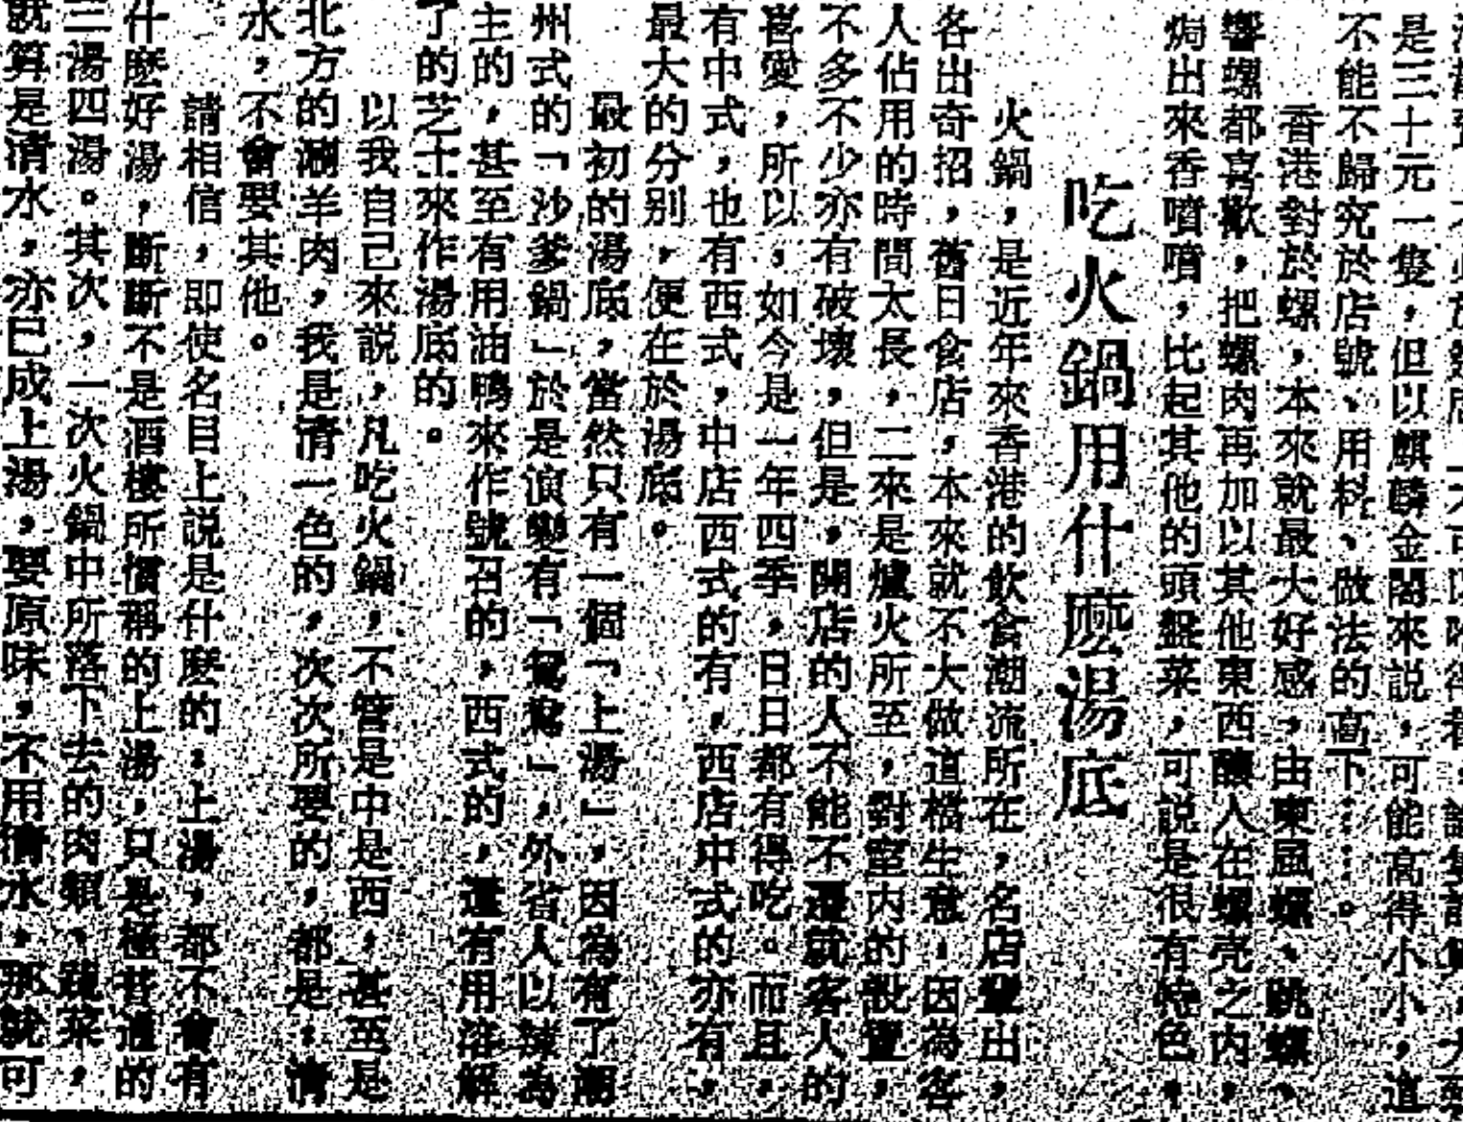 是三十元一隻，但以麒麟金閣來説，可能高得小小，這
不能不歸究於店號、用料、做法的高下……。
香港對於螺，本來就最大好感，由東風螺、跳螺、
響螺都喜歡，把螺肉再加以其他東西釀人在螺壳之内，
焗出來香噴噴，比起其他的頭盤菜，可説是很有特色。
吃火鍋用什麽湯底
火鍋，是近年來香港的飲食潮流所在，名店輩出，
各出奇招，舊日食店，本來就不大做這檔生意，因為客
人佔用的時間太長，二來是爐火所至，對室内的設置，
不多不少亦有破壞，但是，開店的人不能不遷就客人的
喜愛，所以，如今是一年四季，日日都有得吃。而且，
有中式，也有西式，中店西式的有，西店中式的亦有，
最大的分别，便在於湯底。
最初的湯底，當然只有一個「上湯」，因為有了潮
州式的「沙爹鍋」於是演變有「鴛鴦」，外省人以辣為
主的，甚至有用油鴨來作號召的，西式的，還有用溶解
了的芝士來作湯底的。
以我自己來説，凡吃火鍋，不管是中是西，甚至是
北方的涮羊肉，我是清一色的，次次所要的，都是：清
水，不會要其他。
請相信，即使名目上説是什麽的：上湯，都不會有
什麽好湯，斷斷不是酒樓所慣稱的上湯，只是極普通的
三湯四湯。其次，一次火鍋中所落下去的肉類、蔬菜，
就算是清水，亦已成上湯，要原味，不用清水，那就可